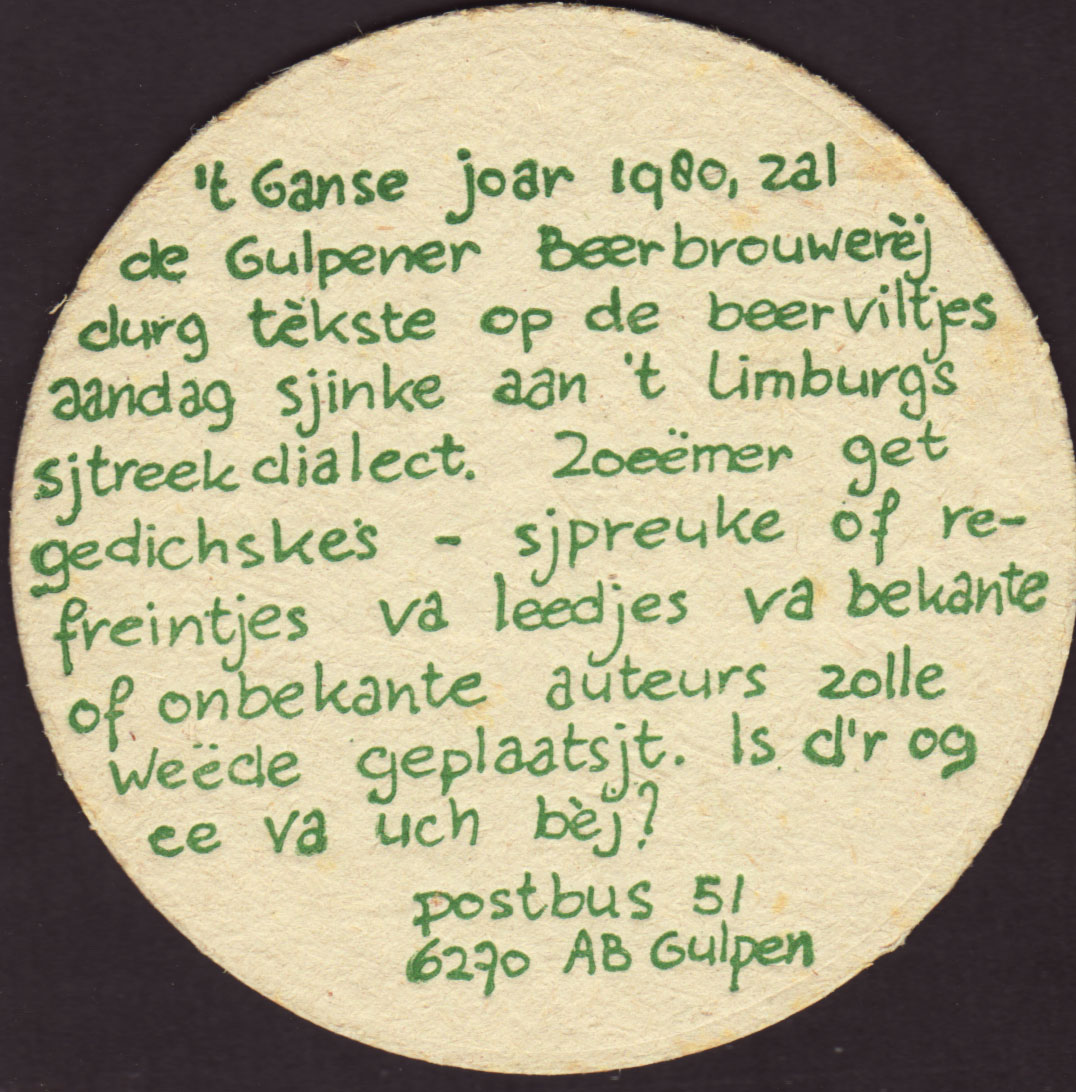 't Ganse joar 1980, zal
de Gulpener Beerbrouwerèj
durg tèkste op de beerviltjes
aandag sjinke aan 't Limburgs
sjtreekdialect. Zoeëmer get
gedichske's - sjpreuke of re-
freintjes va leedjes va bekante
of onbekante auteurs zolle
weëde geplaatsjt. Is d'r og
ee va uch bèj?
postbus 51
6270 AB Gulpen